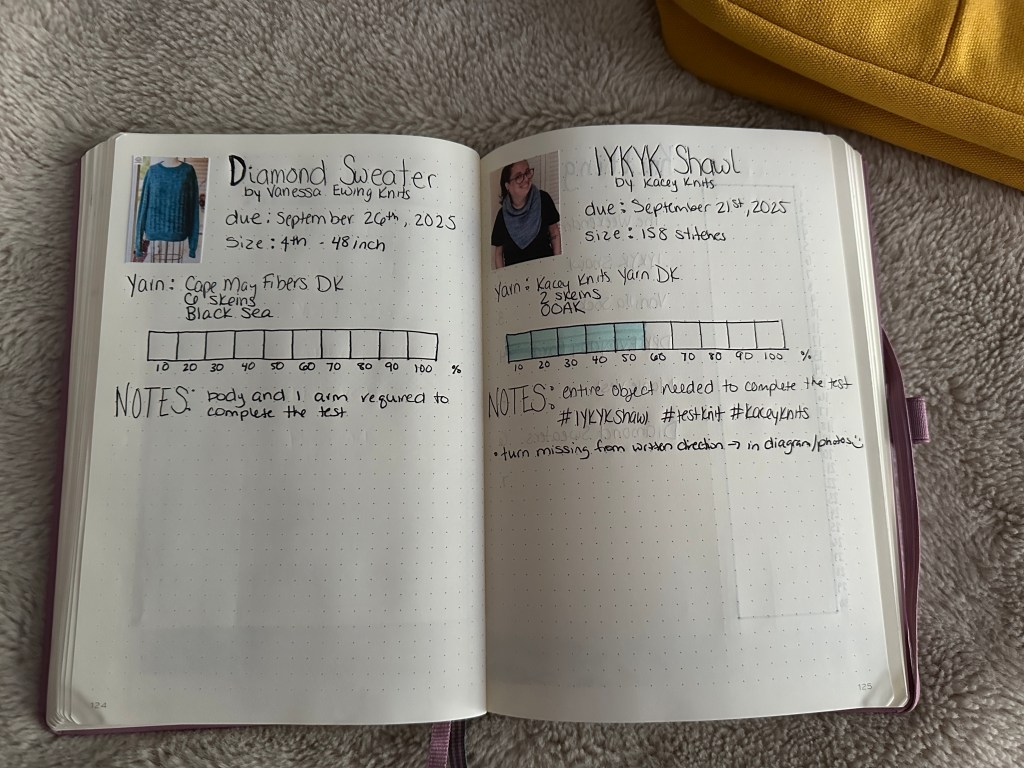 Diamond Sweater
by Vanessa Ewing Knits
due: September 26th, 2025
size: 4th - 48 inch
Yarn: Cape May Fibers DK
6 skeins
Black Sea
10 20 30 40 50 60 70 80 90 100 %
NOTES: body and 1 arm required to
complete the test
124
IYKYK Shawl
by Kacey Knits
due: September 21st, 2025
size: 158 stitches
Yarn: Kacey Knits Yarn DK
2 skeins
OOAK
10 20 30 40 50 60 70 80 90 100 %
NOTES: entire object needed to complete the test
#IYKYKShawl #testknit #KaceyKnits
• turn missing from written direction → in diagram/photos :)
125